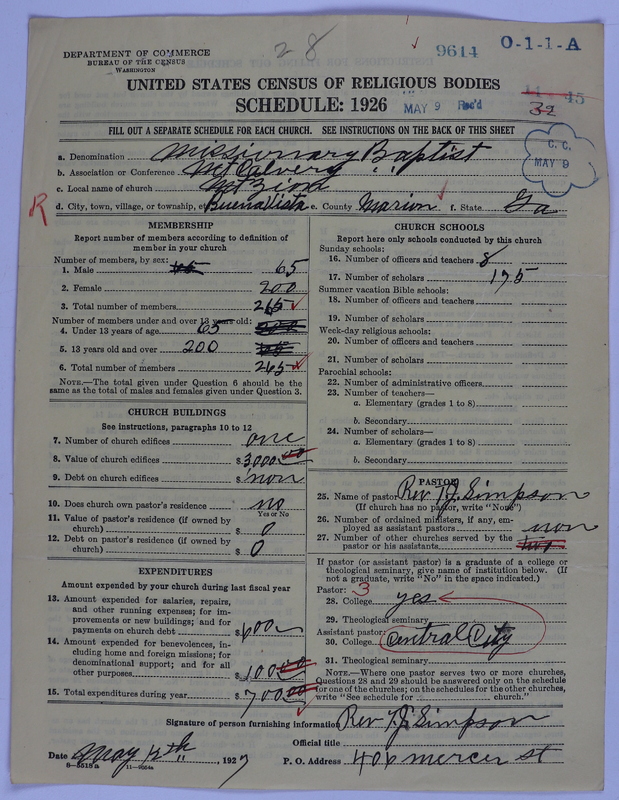 28
9614
O-1-1-A
DEPARTMENT OF COMMERCE
BUREAU OF THE CENSUS
WASHINGTON
UNITED STATES CENSUS OF RELIGIOUS BODIES
SCHEDULE: 1926
MAY 9 Rec'd
11-45
32
FILL OUT A SEPARATE SCHEDULE FOR EACH CHURCH. SEE INSTRUCTIONS ON THE BACK OF THIS SHEET
C. C.
MAY 9
a. Denomination Missionary Baptist
b. Association or Conference Mt Calvery
c. Local name of church Mt Ziond
R
d. City, town, village, or township, etc Buena Vista e. County Marion f. State Ga
MEMBERSHIP
Report number of members according to definition of
member in your church
Number of members, by sex:
1. Male 65
2. Female 200
3. Total number of members 265
Number of members under and over 13 years old:
4. Under 13 years of age 65
5. 13 years old and over 200
6. Total number of members 265
NOTE.—The total given under Question 6 should be the
same as the total of males and females given under Question 3.
CHURCH BUILDINGS
See instructions, paragraphs 10 to 12
7. Number of church edifices one
8. Value of church edifices $3000 00
9. Debt on church edifices $ non
10. Does church own pastor's residence no
Yes or No
11. Value of pastor's residence (if owned by
church) $ 0
12. Debt on pastor's residence (if owned by
church) $ 0
EXPENDITURES
Amount expended by your church during last fiscal year
13. Amount expended for salaries, repairs,
and other running expenses; for im-
provements or new buildings; and for
payments on church debt $600
14. Amount expended for benevolences, in-
cluding home and foreign missions; for
denominational support; and for all
other purposes $100 00
15. Total expenditures during year $700 00
CHURCH SCHOOLS
Report here only schools conducted by this church
Sunday schools:
16. Number of officers and teachers 8
17. Number of scholars 175
Summer vacation Bible schools:
18. Number of officers and teachers
19. Number of scholars
Week-day religious schools:
20. Number of officers and teachers
21. Number of scholars
Parochial schools:
22. Number of administrative officers
23. Number of teachers—
a. Elementary (grades 1 to 8)
b. Secondary
24. Number of scholars—
a. Elementary (grades 1 to 8)
b. Secondary
PASTOR
25. Name of pastor Rev T J Simpson
(If church has no pastor, write "None")
26. Number of ordained ministers, if any, em-
ployed as assistant pastors non
27. Number of other churches served by the
pastor or his assistants two
If pastor (or assistant pastor) is a graduate of a college or
theological seminary, give name of institution below. (If
not a graduate, write "No" in the space indicated.)
Pastor: 3
28. College yes
29. Theological seminary
Assistant pastor:
30. College Central City
31. Theological seminary
NOTE.—Where one pastor serves two or more churches,
Questions 28 and 29 should be answered only on the schedule
for one of the churches; on the schedules for the other churches,
write "See schedule for church."
Signature of person furnishing information Rev T J Simpson
Official title
Date May 12th, 1927 P. O. Address 406 mercer st
6—5518a 11—9054a